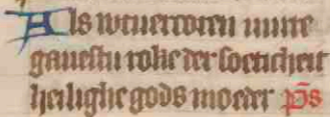 Als wtuercoren mirre
gauestu roke der soeticheit
heilighe gods moeder p̄s